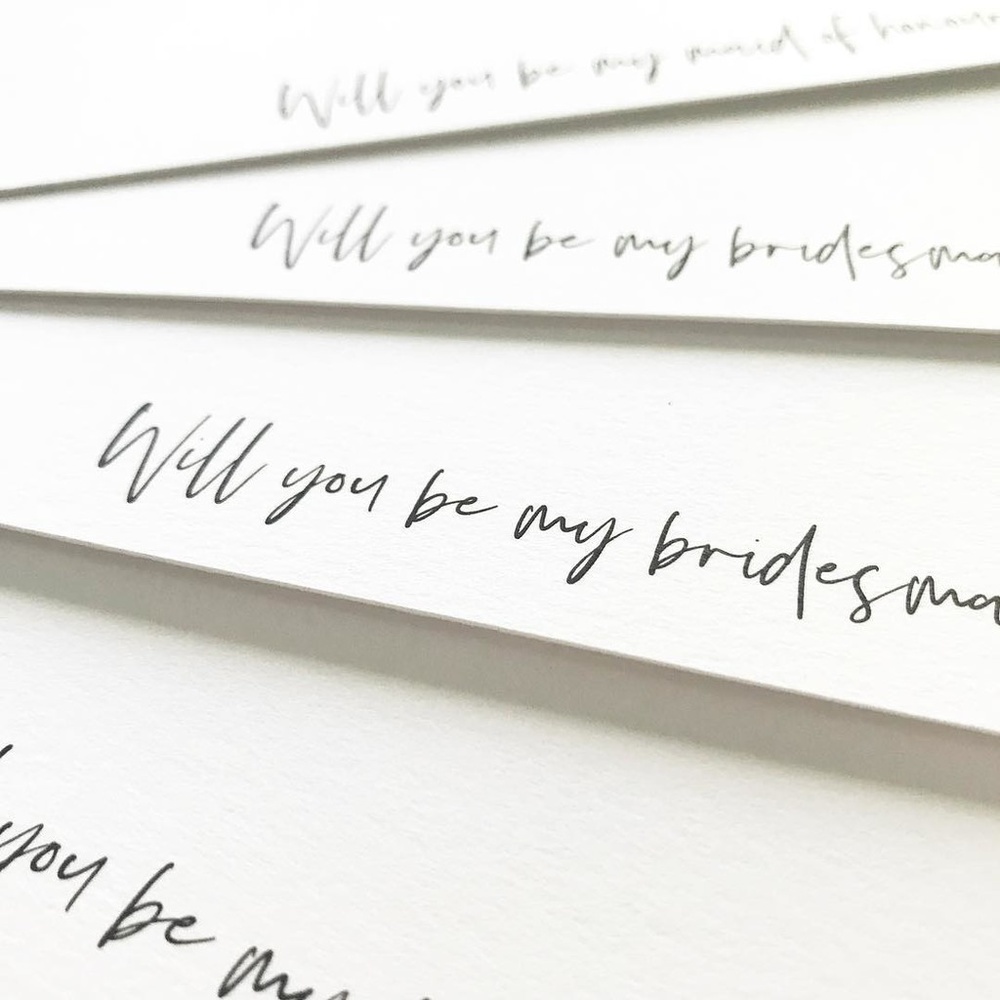 Will you be my maid of honour
Will you be my bridesma
Will you be my bridesma
you be my